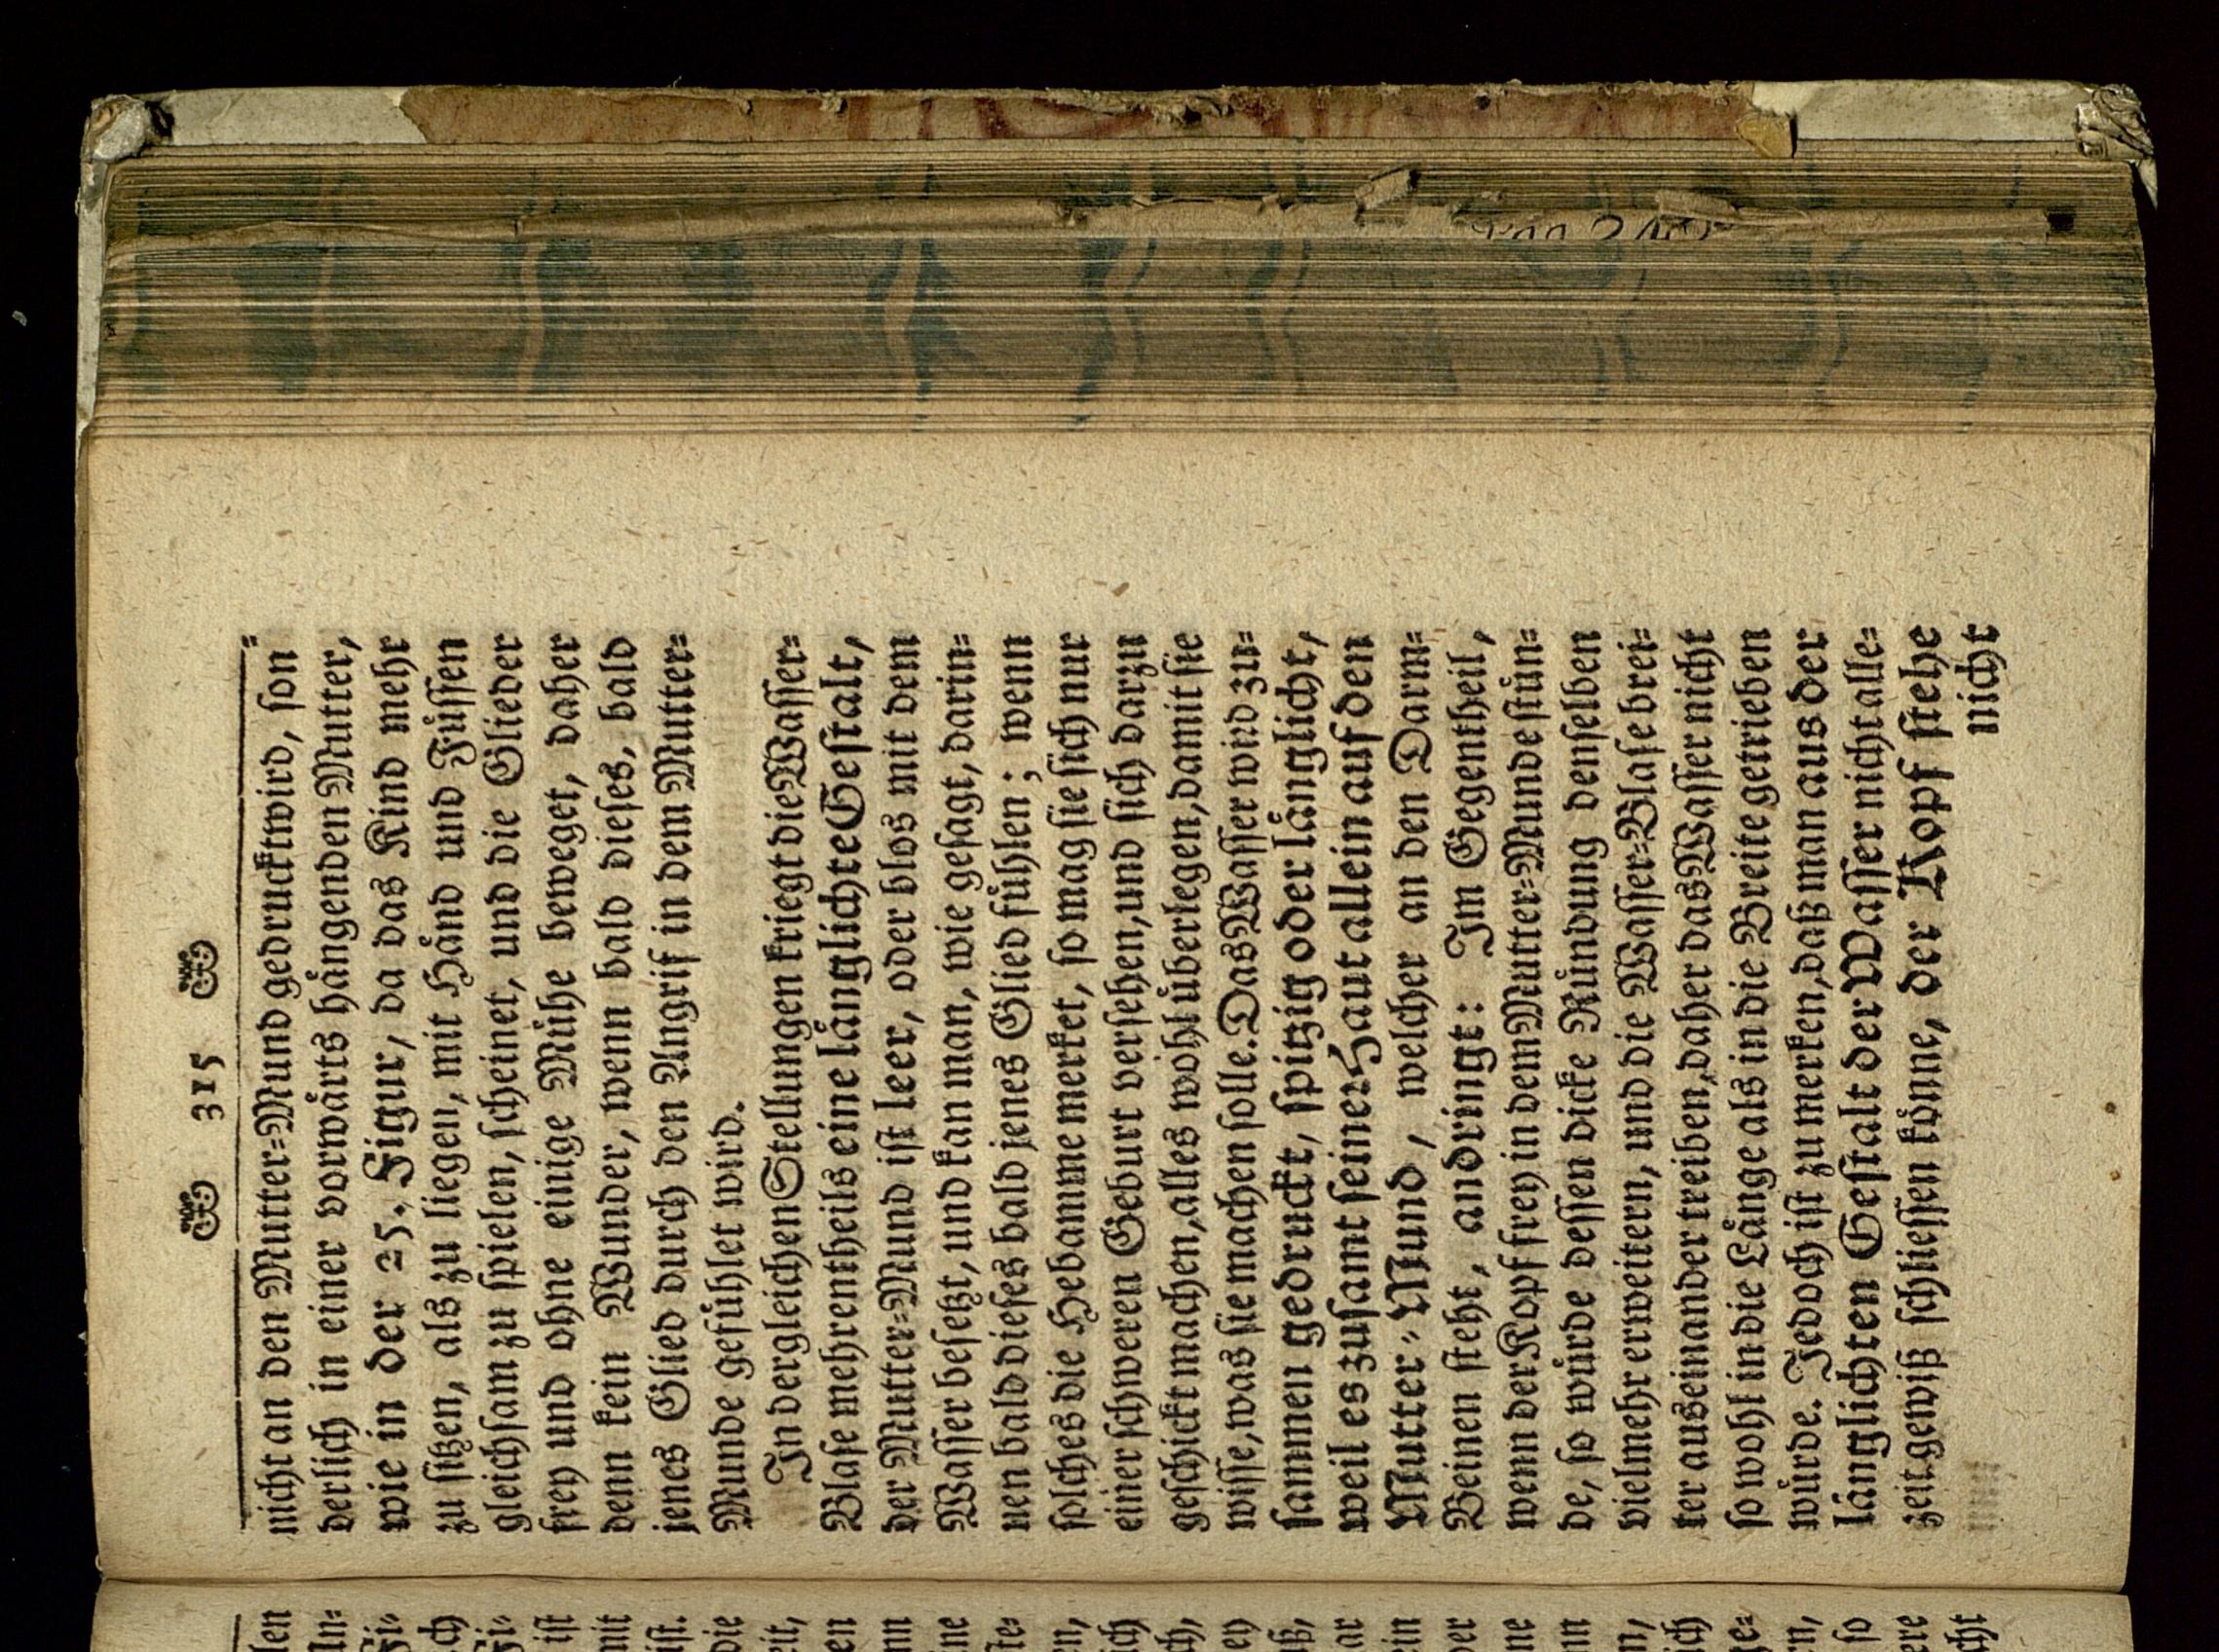 315
nicht an den Mutter=Mund gedruckt wird, son=
derlich in einer vorwärts hängenden Mutter,
wie in der 25. Figur, da das Kind mehr
zu sitzen, als zu liegen, mit Händ und Füssen
gleichsam zu spielen, scheinet, und die Glieder
frey und ohne einige Mühe beweget, daher
denn kein Wunder, wenn bald dieses, bald
jenes Glied durch den Angrif in dem Mutter=
Munde gefühlet wird.
In dergleichen Stellungen kriegt die Wasser=
Blase mehrentheils eine länglichte Gestalt,
der Mutter=Mund ist leer, oder blos mit dem
Wasser besetzt, und kan man, wie gesagt, darin=
nen bald dieses bald jenes Glied fühlen; wenn
solches die Hebamme merket, so mag sie sich nur
einer schweren Geburt versehen, und sich darzu
geschickt machen, alles wohl überlegen, damit sie
wisse, was sie machen solle. Das Wasser wird zu=
sammen gedruckt, spitzig oder länglicht,
weil es zusamt seiner Haut allein auf den
Mutter=Mund, welcher an den Darm=
Beinen steht, andringt: Im Gegentheil,
wenn der Kopf frey in dem Mutter=Munde stün=
de, so würde dessen dicke Ründung denselben
vielmehr erweitern, und die Wasser=Blase brei=
ter auseinander treiben, daher das Wasser nicht
so wohl in die Länge als in die Breite getrieben
würde. Jedoch ist zu merken, daß man aus der
länglichten Gestalt der Wasser nicht alle=
zeit gewiß schliessen könne, der Kopf stehe
nicht